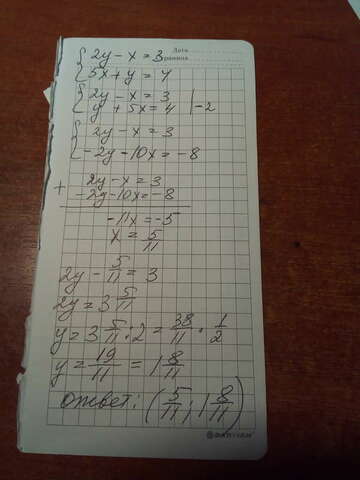 Дата
{2y - x = 3
{5x + y = 4
{2y - x = 3
{y + 5x = 4 | -2
{2y - x = 3
{-2y - 10x = -8
+ 2y - x = 3
-2y - 10x = -8
-11x = -5
x = 5/11
2y - 5/11 = 3
2y = 3 5/11
y = 3 5/11 : 2 = 38/11 · 1/2
y = 19/11 = 1 8/11
Ответ: (5/11; 1 8/11)